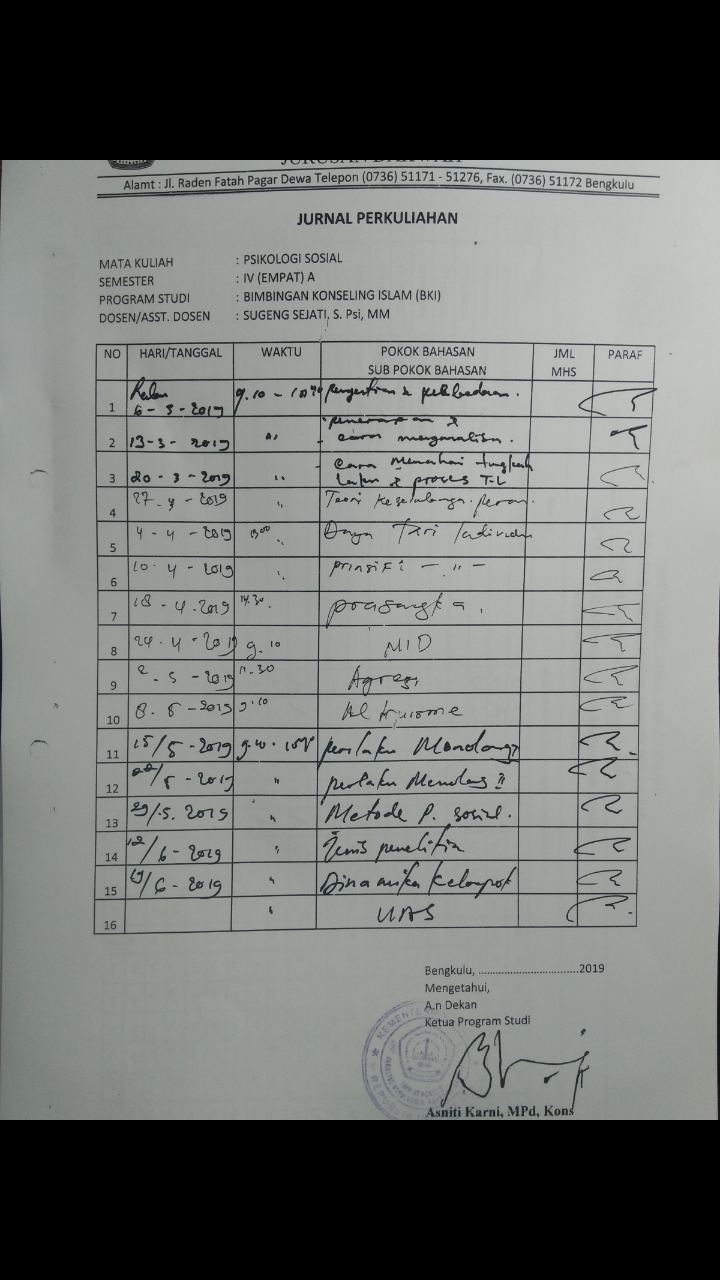 JURUSAN DAKWAH
Alamt : Jl. Raden Fatah Pagar Dewa Telepon (0736) 51171 - 51276, Fax. (0736) 51172 Bengkulu
JURNAL PERKULIAHAN
MATA KULIAH : PSIKOLOGI SOSIAL
SEMESTER : IV (EMPAT) A
PROGRAM STUDI : BIMBINGAN KONSELING ISLAM (BKI)
DOSEN/ASST. DOSEN : SUGENG SEJATI, S. Psi, MM
NO HARI/TANGGAL WAKTU POKOK BAHASAN SUB POKOK BAHASAN JML MHS PARAF
1 6-3-2019 9.10 -
2 13-3-2019 " cara
3 20-3-2019 " Cara tingkah laku & proses T-L
4 27-3-2019 " Teori
5 4-4-2019 13.00 Daya Tari Individu
6 10-4-2019 " prinsif - " -
7 18-4-2019 14.30 prasangka
8 24-4-2019 9.10 MID
9 2-5-2019 11.30 Agresi
10 8-5-2019 9.10 Altruisme
11 15/5-2019 9.10 - perilaku Menolong
12 22/5-2019 " perilaku Menolong II
13 29/5.2019 " Metode P. sosial.
14 12/6-2019 " Jenis penelitia
15 19/6-2019 " Dinamika Kelompok
16 " UAS
Bengkulu, ................................2019
Mengetahui,
A.n Dekan
Ketua Program Studi
Asniti Karni, MPd, Kons